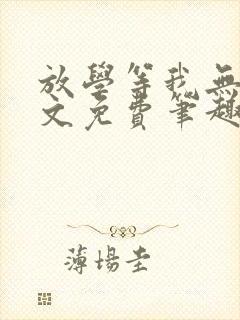 放學等我無
文免費筆趣
薄場圭